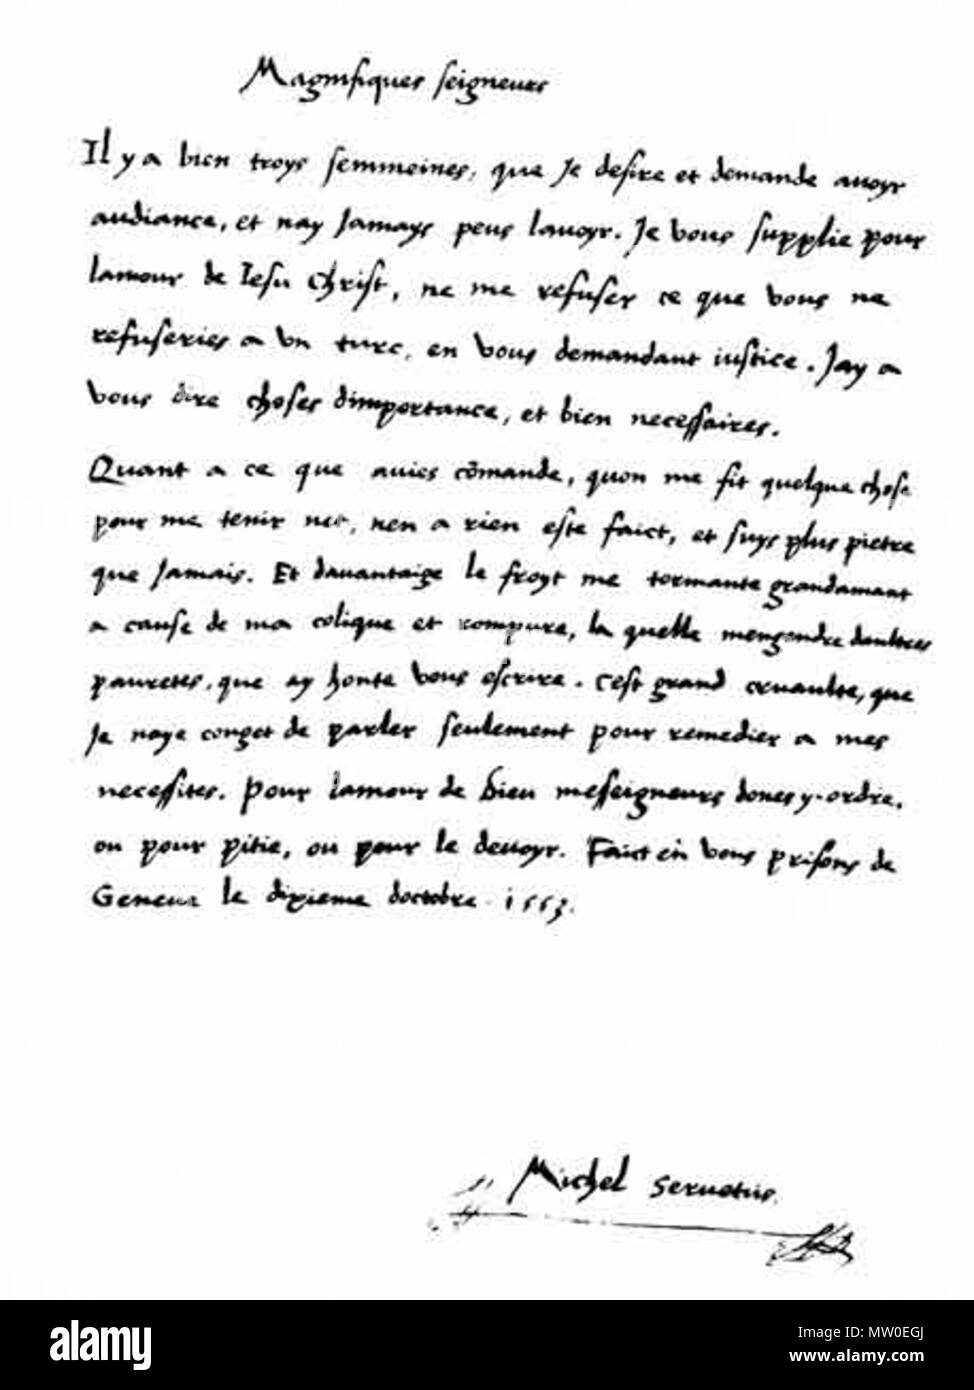 Magnifiques seigneurs
Il y a bien troys semmeines, que Je desire et demande avoyr
audiance, et nay Jamays peus lavoyr. Je vous supplie pour
lamour de Iesu Christ, ne me refuser ce que vous ne
refuseries a vn turc, en vous demandant iustice. Jay a
vous dire choses dimportance, et bien necessaires.
Quant a ce que avies cõmande, quon me fit quelque chose
pour me tenir net, nen a rien este faict, et suys plus pietre
que Jamais. Et davantaige le froyt me tormante grandamant
a cause de ma colique et rompure, la quelle mengendre daultres
pauretes, que ay honte vous escrire. Cest grand cruaulte, que
Je naye conget de parler seulement pour remedier a mes
necessites. Pour lamour de Dieu messeigneurs dones y ordre,
ou pour pitie, ou pour le devoyr. Faict en vous prisons de
Geneve le dixieme doctobre 1553.
Michel Servetus
alamy
Image ID: MW0EGJ
www.alamy.com